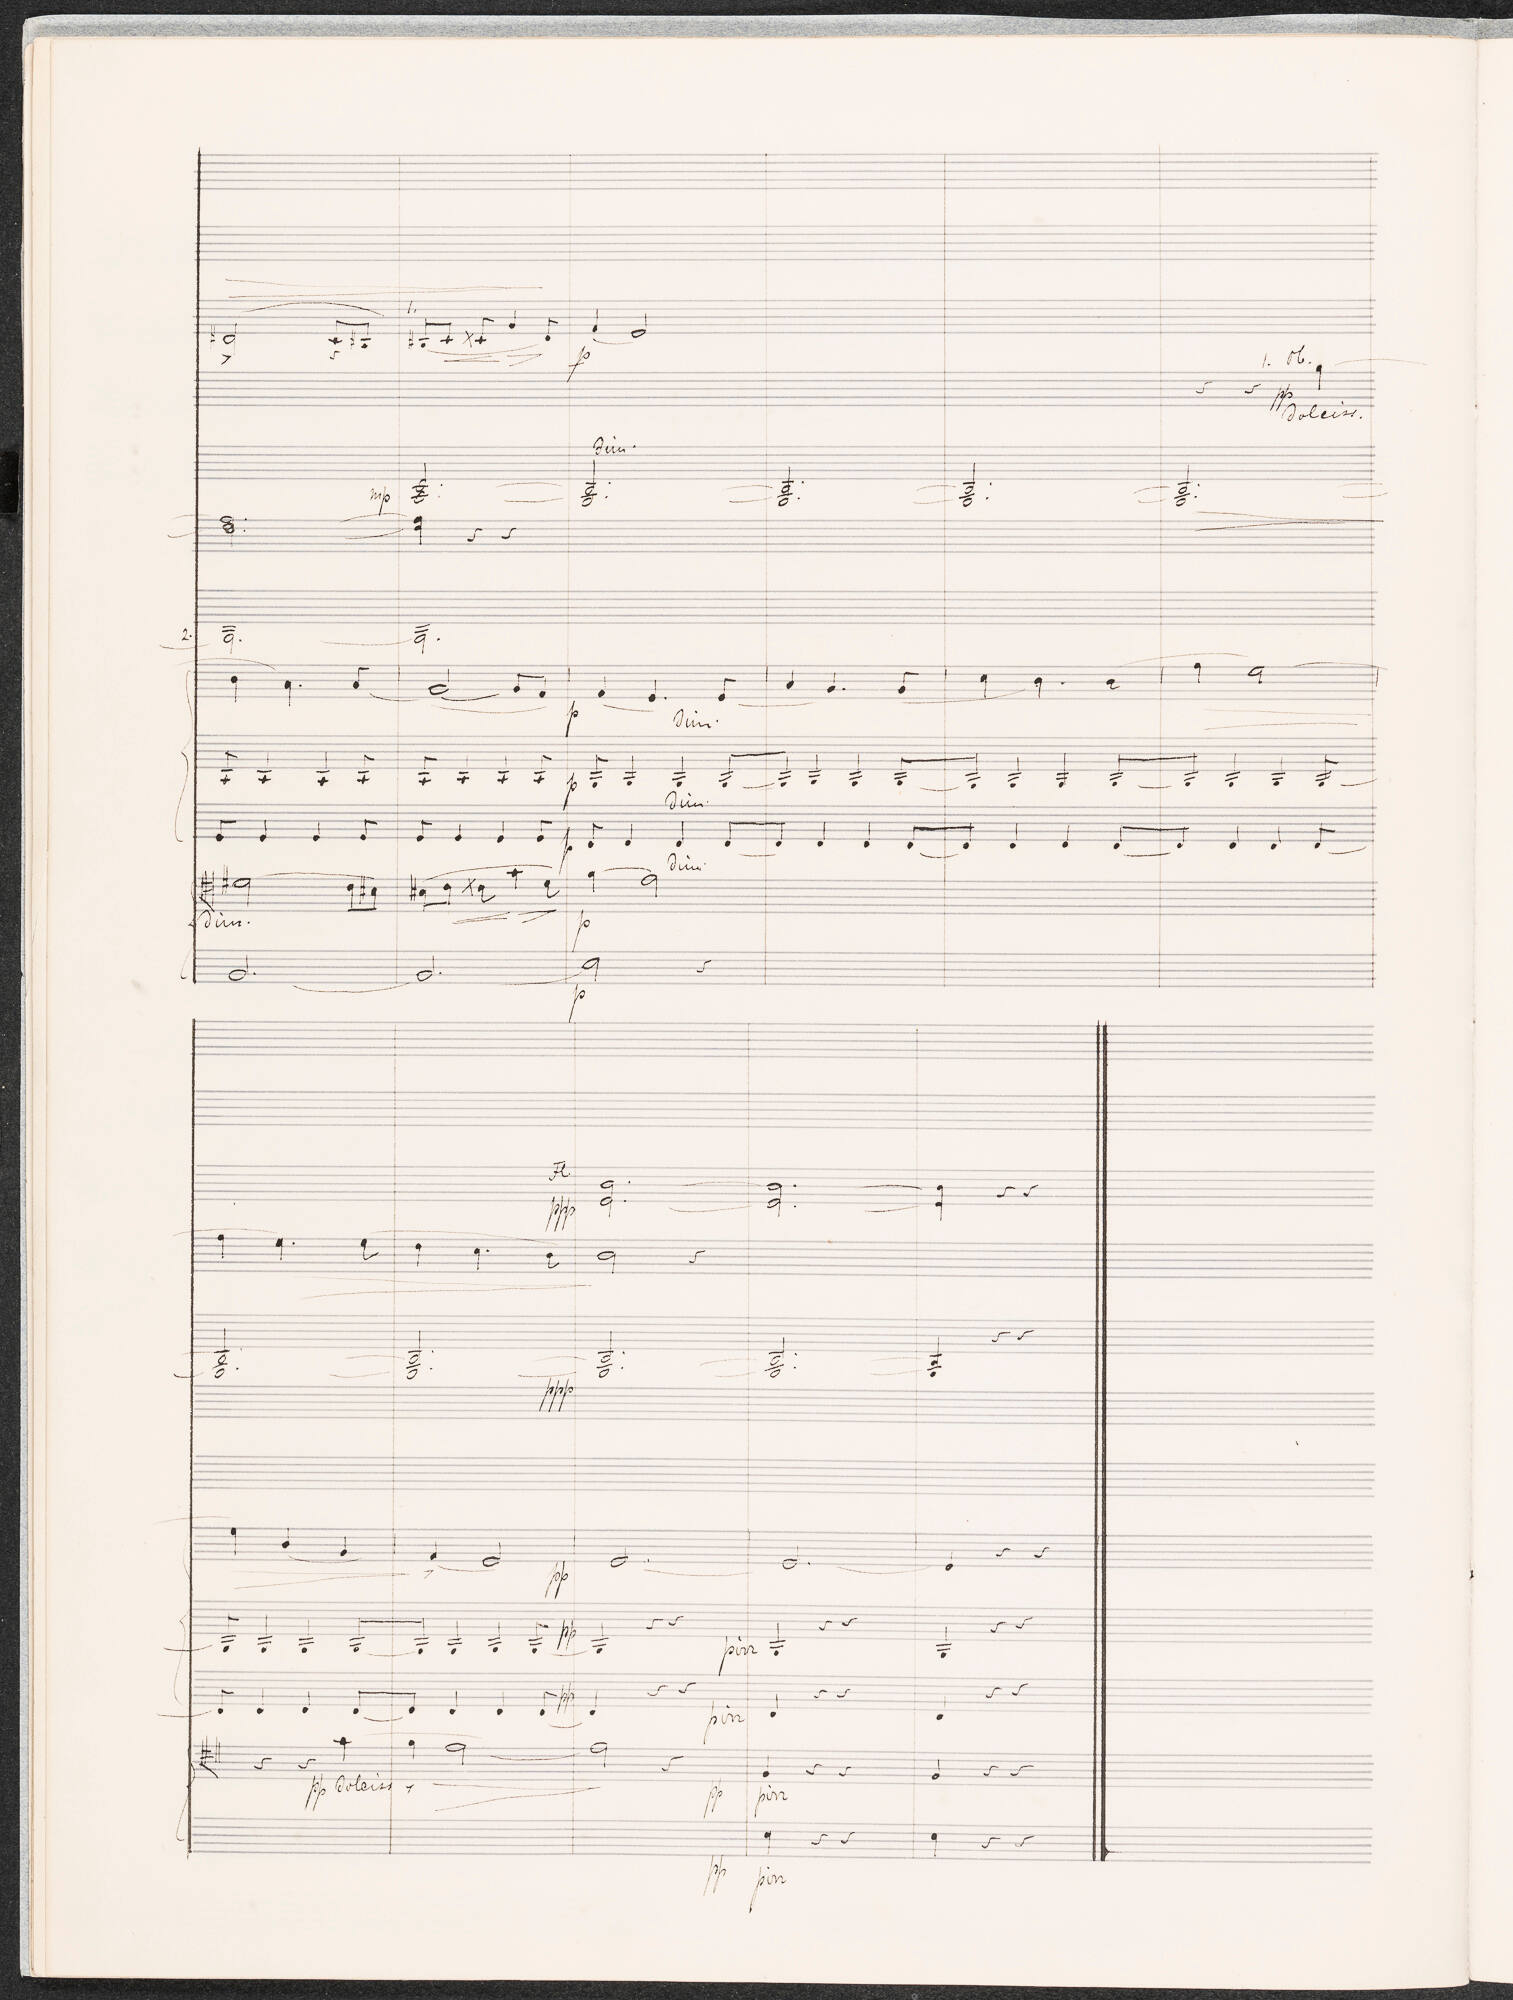 1.
p
1. Ob.
pp
dolciss.
dim.
mp
2.
p
dim.
p
dim.
p
dim.
dim.
p
p
Fl
ppp
ppp
pp
pp
pizz
pp
pizz
pp dolciss
pp
pizz
pp
pizz